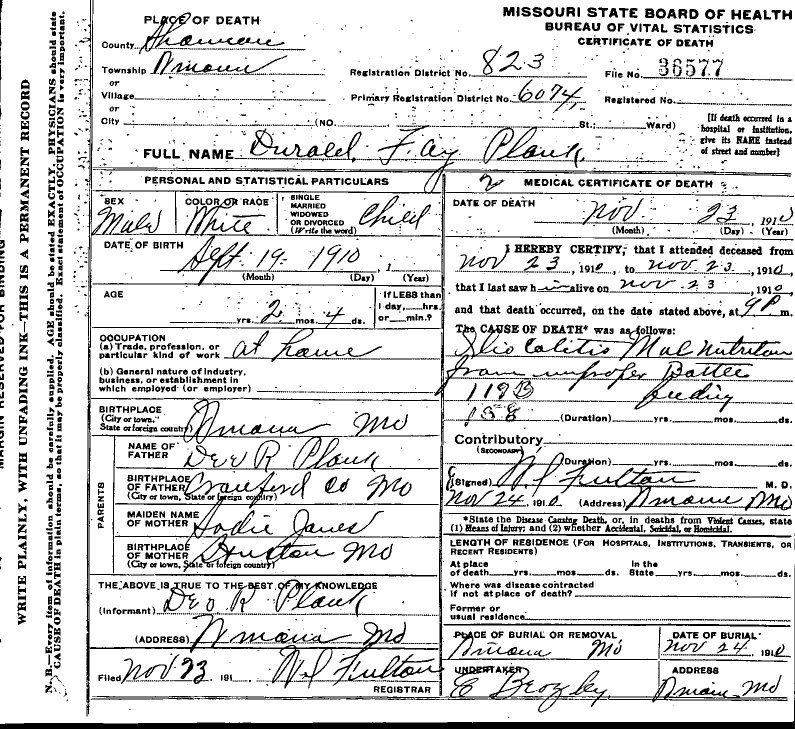 MISSOURI STATE BOARD OF HEALTH
BUREAU OF VITAL STATISTICS
CERTIFICATE OF DEATH
PLACE OF DEATH
County Shannon
Township
or
Village
or
City (NO. St.; Ward)
Registration District No. 823
File No. 36577
Primary Registration District No. 6074
Registered No.
[If death occurred in a hospital or institution, give its NAME instead of street and number]
FULL NAME Durald Fay Plank
PERSONAL AND STATISTICAL PARTICULARS
SEX Male
COLOR OR RACE White
SINGLE MARRIED WIDOWED OR DIVORCED (Write the word) Child
DATE OF BIRTH Sept. 19 1910 1
(Month) (Day) (Year)
AGE
yrs. 2 mos. 4 ds.
If LESS than 1 day, hrs. or min.?
OCCUPATION
(a) Trade, profession, or particular kind of work at home
(b) General nature of industry, business, or establishment in which employed (or employer)
BIRTHPLACE
(City or town, State or foreign country) Mo
PARENTS
NAME OF FATHER R Plank
BIRTHPLACE OF FATHER
(City or town, State or foreign country) Crawford Co Mo
MAIDEN NAME OF MOTHER Sadie Jones
BIRTHPLACE OF MOTHER
(City or town, State or foreign country) Houston Mo
THE ABOVE IS TRUE TO THE BEST OF MY KNOWLEDGE
(Informant) R Plank
(ADDRESS) Mo
Filed Nov 23, 191 Fulton
REGISTRAR
2 MEDICAL CERTIFICATE OF DEATH
DATE OF DEATH Nov 23 1910
(Month) (Day) (Year)
I HEREBY CERTIFY, that I attended deceased from
Nov 23, 1910, to Nov 23, 1910,
that I last saw him alive on Nov 23 1910
and that death occurred, on the date stated above, at 9P m.
The CAUSE OF DEATH* was as follows:
Ilio Colitis Mal Nutrition
from improper Bottle
119B feeding
158 (Duration) yrs. mos. ds.
Contributory
(SECONDARY)
(Duration) yrs. mos. ds.
(Signed) Fulton M. D.
Nov 24, 1910 (Address) Mo
*State the Disease Causing Death, or, in deaths from Violent Causes, state
(1) Means of Injury; and (2) whether Accidental, Suicidal, or Homicidal.
LENGTH OF RESIDENCE (FOR HOSPITALS, INSTITUTIONS, TRANSIENTS, OR RECENT RESIDENTS)
At place of death yrs. mos. ds. In the State yrs. mos. ds.
Where was disease contracted
if not at place of death?
Former or
usual residence
PLACE OF BURIAL OR REMOVAL Mo
DATE OF BURIAL Nov 24 1910
UNDERTAKER
ADDRESS Mo
MARGIN RESERVED FOR BINDING
WRITE PLAINLY, WITH UNFADING INK—THIS IS A PERMANENT RECORD
N. B.—Every item of information should be carefully supplied. AGE should be stated EXACTLY. PHYSICIANS should state
CAUSE OF DEATH in plain terms, so that it may be properly classified. Exact statement of OCCUPATION is very important.